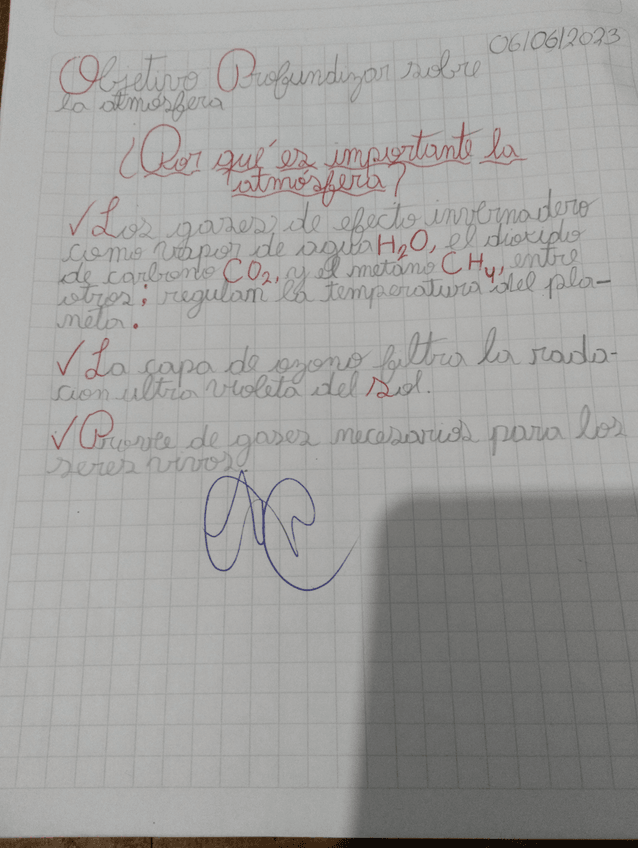 06/06/2023
Objetivo Profundizar sobre
la atmósfera
¿Por qué es importante la
atmósfera?
✓Los gases de efecto invernadero
como vapor de agua H₂O, el dioxido
de carbono CO₂, y el metano CH₄, entre
otros; regulan la temperatura del pla-
neta.
✓La capa de ozono filtra la rada-
cion ultra violeta del sol.
✓Provee de gases necesarios para los
seres vivos